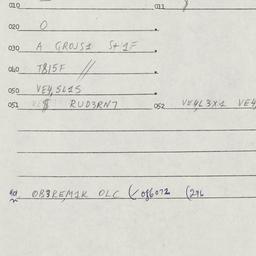 010 011
020 O
030 A GROUS1 St1F
040 T815F //
050 VE4,SL1S
051 RUD3RN7 052 VE4L3X1 VE4
OB3REM1K OLC (086072 (276